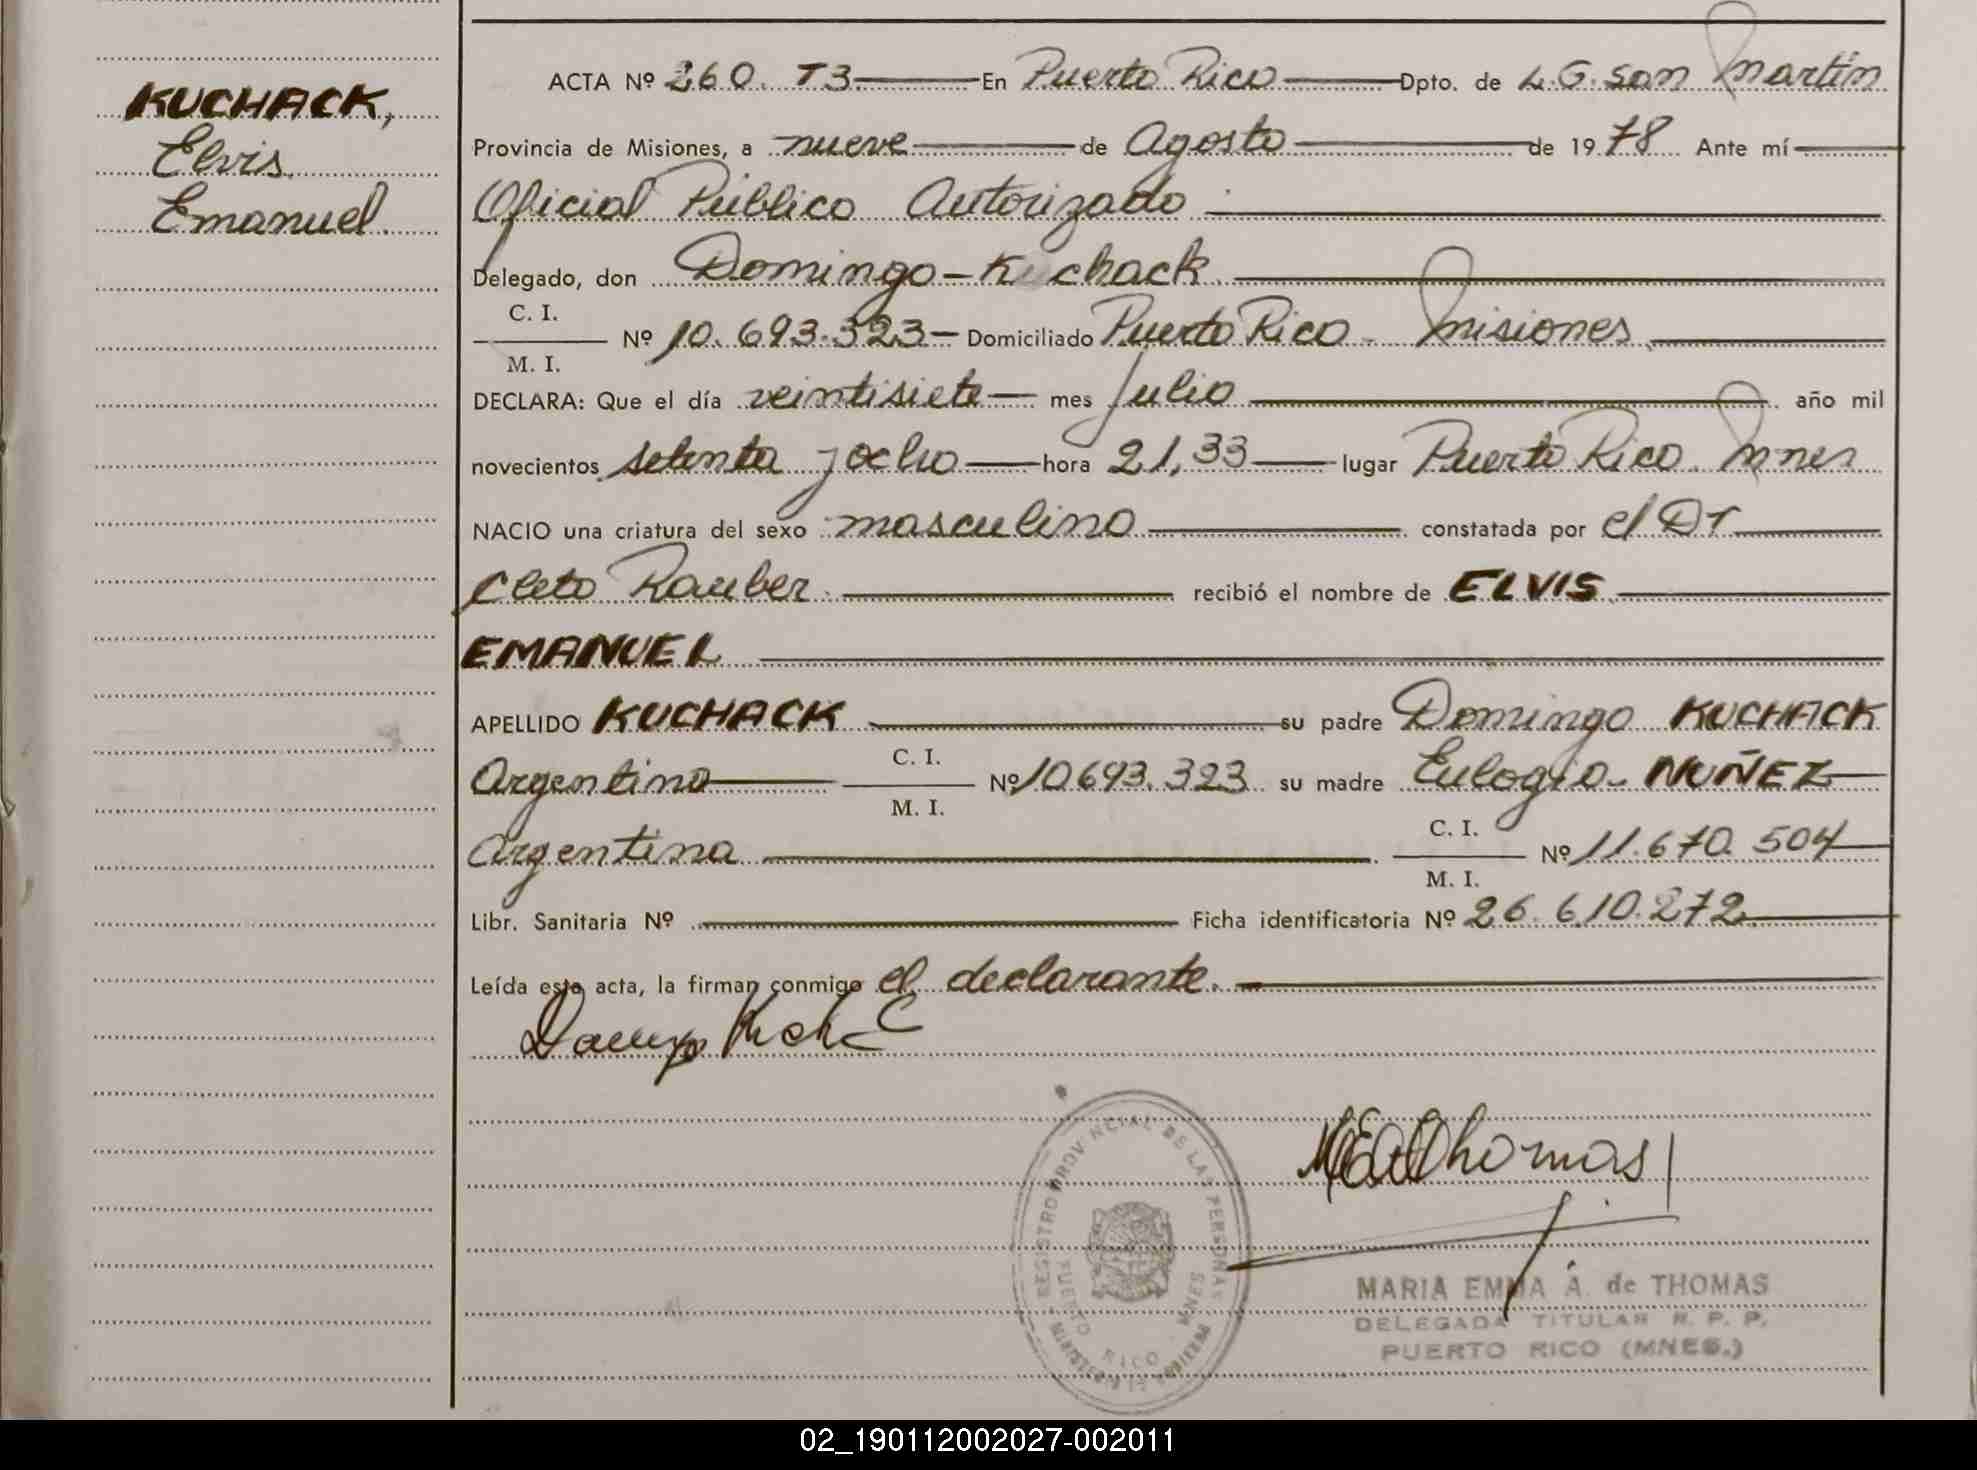 KUCHACK,
Elvis
Emanuel.
ACTA Nº 260. T3. En Puerto Rico Dpto. de L.G. San Martín
Provincia de Misiones, a nueve de Agosto de 1978 Ante mí
Oficial Público Autorizado
Delegado, don Domingo - Kuchack
C. I.
Nº 10.693.323 - Domiciliado Puerto Rico - Misiones
M. I.
DECLARA: Que el día veintisiete mes Julio año mil
novecientos setenta y ocho hora 21,33 lugar Puerto Rico. Mnes
NACIO una criatura del sexo masculino constatada por el Dr
Cleto Rauber recibió el nombre de ELVIS
EMANUEL
APELLIDO KUCHACK su padre Domingo KUCHACK
Argentino C. I. Nº 10693.323 su madre Eulogia - NUÑEZ
M. I.
Argentina C. I. Nº 11.670.504
M. I.
Libr. Sanitaria Nº Ficha identificatoria Nº 26.610.272
Leída esta acta, la firman conmigo el declarante.
MEAdThomas
REGISTRO PROVINCIAL DE LAS PERSONAS
PUERTO RICO - MNES
MARIA EMMA A. de THOMAS
DELEGADA TITULAR R. P. P.
PUERTO RICO (MNES.)
02_190112002027-002011